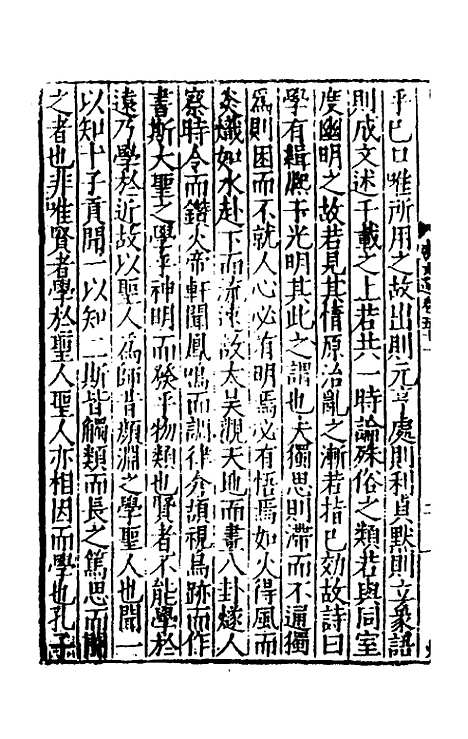 乎已口唯所用之故出則元亨處則利貞默則立象語
則成文述千載之上若共一時論殊俗之類若與同室
度幽明之故若見其情原治亂之漸若指已効故詩曰
學有緝熙于光明其此之謂也夫獨思則滯而不通獨
爲則困而不就人心必有明焉必有悟焉如火得風而
炎熾如水赴下而流速故太昊觀天地而畫八卦燧人
察時令而鑽火帝軒聞鳳鳴而調律倉頡視鳥跡而作
書斯大聖之學乎神明而發乎物類也賢者不能學於
遠乃學於近故以聖人爲師昔顏淵之學聖人也聞一
以知十子貢聞一以知二斯皆觸類而長之篤思而聞
之者也非唯賢者學於聖人聖人亦相因而學也孔子